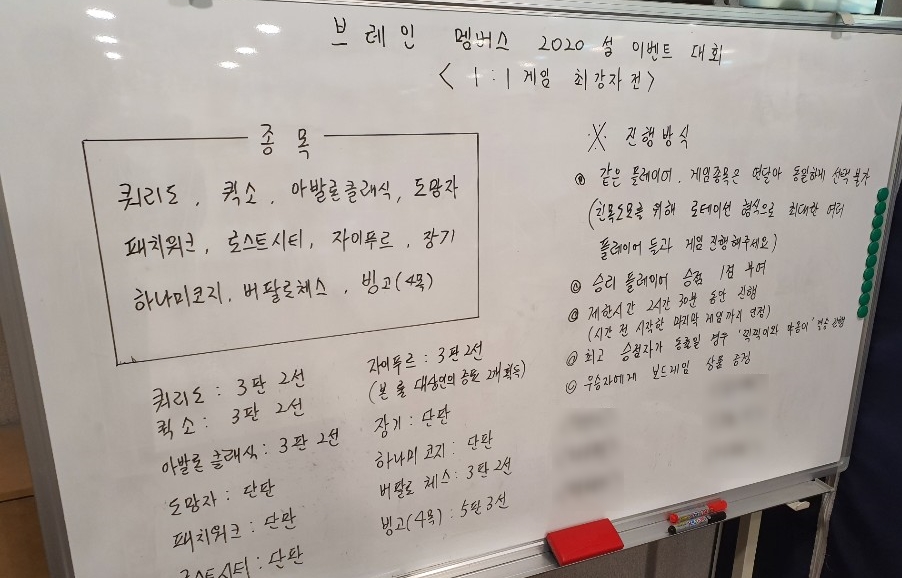 브레인 멤버스 2020 설 이벤트 대회
< 1:1 게임 최강자전 >
종목
쿼리도, 퀵소, 아발론클래식, 도망자
패치워크, 로스트시티, 자이푸르, 장기
하나미코지, 버팔로체스, 빙고(4목)
쿼리도 : 3판 2선
퀵소 : 3판 2선
아발론 클래식 : 3판 2선
도망자 : 단판
패치워크 : 단판
로스트시티 : 단판
자이푸르 : 3판 2선
(본 룰 대상인의 증표 2개 획득)
장기 : 단판
하나미코지 : 단판
버팔로 체스 : 3판 2선
빙고(4목) : 5판 3선
※ 진행방식
같은 플레이어, 게임종목은 연달아 동일하게 선택 불가
(친목도모를 위해 로테이션 형식으로 최대한 여러
플레이어 들과 게임 진행해주세요)
승리 플레이어 승점 1점 부여
제한시간 2시간 30분 동안 진행
(시간 전 시작한 마지막 게임까지 인정)
최고 승점자가 동률일 경우
우승자에게 보드게임 상품 증정